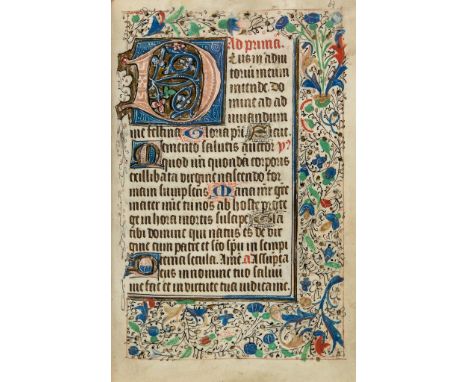 Ad primā.
Deus in adiu
toriū meum
intende. Do
mine ad ad
iuuandum
me festina Gloria pri Sicut.
Memento salutis auctor
quod nr̄i quondā corporis
ex illibata virgine nascendo for
mam sumpseris Maria mr̄ gr̄e
mater mīe tu nos ab hoste prote
ge in hora mortis suscipe Glīa
tibi domine qui natus es de vir
gine cum patre et sc̄o spū in sempi
terna secula. Amē. a Assūpta
Deus in nomine tuo saluū
me fac et in virtute tua iudica me.